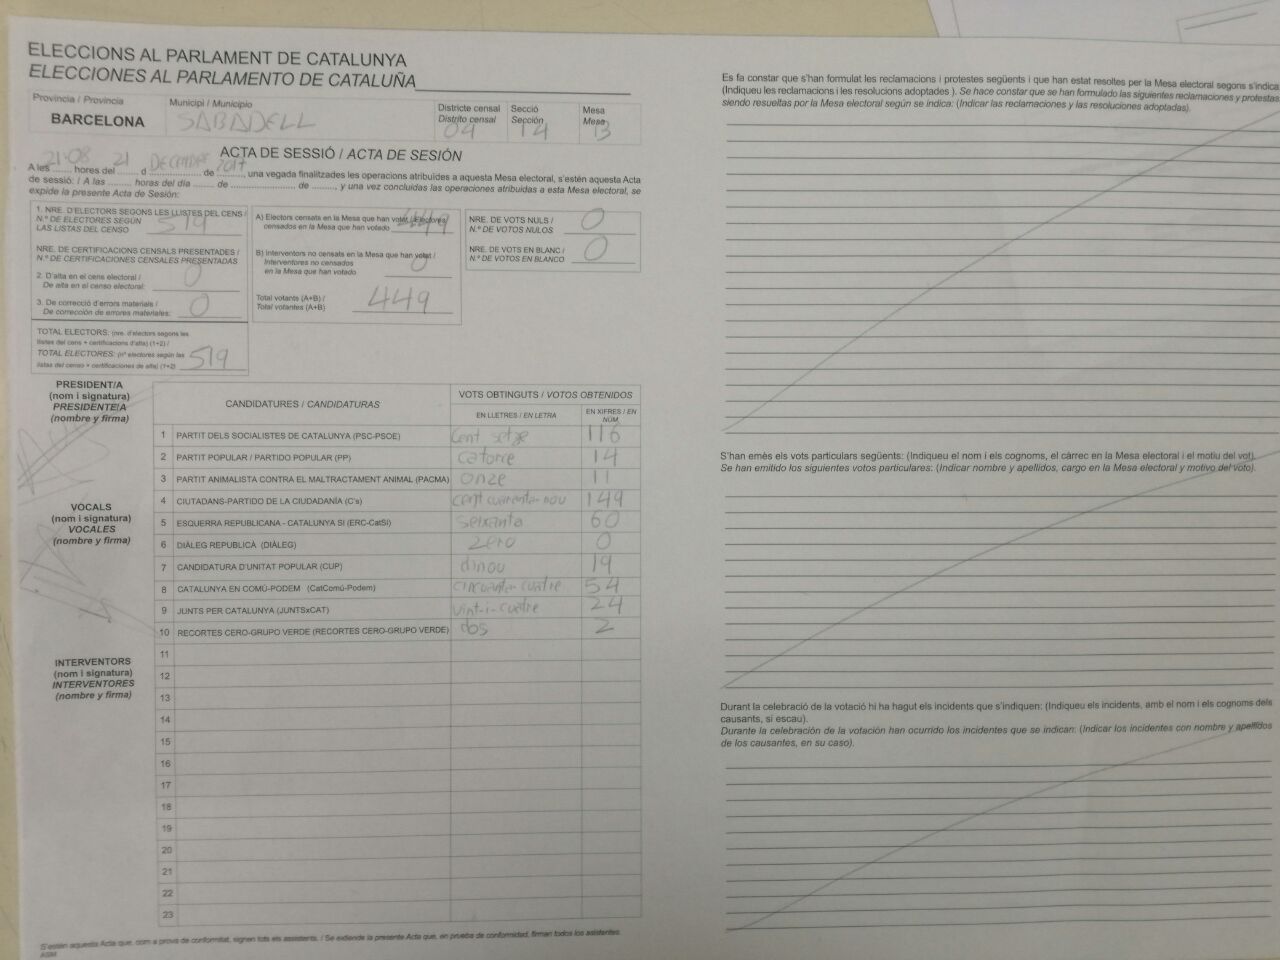 ELECCIONS AL PARLAMENT DE CATALUNYA
ELECCIONES AL PARLAMENTO DE CATALUÑA
Província / Provincia
BARCELONA
Municipi / Municipio
SABADELL
Districte censal
Distrito censal
04
Secció
Sección
14
Mesa
Mesa
B
ACTA DE SESSIÓ / ACTA DE SESIÓN
A les 21.08 hores del 21 d DECEMBRE de 2017, una vegada finalitzades les operacions atribuïdes a aquesta Mesa electoral, s'estén aquesta Acta
de sessió: / A las ........ horas del día ....... de ........................ de ......., y una vez concluidas las operaciones atribuidas a esta Mesa electoral, se
expide la presente Acta de Sesión:
1. NRE. D'ELECTORS SEGONS LES LLISTES DEL CENS /
N.º DE ELECTORES SEGÚN
LAS LISTAS DEL CENSO
519
NRE. DE CERTIFICACIONS CENSALS PRESENTADES /
N.º DE CERTIFICACIONES CENSALES PRESENTADAS
2. D'alta en el cens electoral /
De alta en el censo electoral:
0
3. De correcció d'errors materials /
De corrección de errores materiales:
0
TOTAL ELECTORS: (nre. d'electors segons les
llistes del cens + certificacions d'alta) (1+2) /
TOTAL ELECTORES: (nº electores según las
listas del censo + certificaciones de alta) (1+2)
519
A) Electors censats en la Mesa que han votat / Electores
censados en la Mesa que han votado
449
B) Interventors no censats en la Mesa que han votat /
Interventores no censados
en la Mesa que han votado
0
Total votants (A+B) /
Total votantes (A+B)
449
NRE. DE VOTS NULS /
N.º DE VOTOS NULOS
0
NRE. DE VOTS EN BLANC /
N.º DE VOTOS EN BLANCO
0
PRESIDENT/A
(nom i signatura)
PRESIDENTE/A
(nombre y firma)
VOCALS
(nom i signatura)
VOCALES
(nombre y firma)
INTERVENTORS
(nom i signatura)
INTERVENTORES
(nombre y firma)
CANDIDATURES / CANDIDATURAS
VOTS OBTINGUTS / VOTOS OBTENIDOS
EN LLETRES / EN LETRA
EN XIFRES / EN
NÚM.
1 PARTIT DELS SOCIALISTES DE CATALUNYA (PSC-PSOE) Cent setze 116
2 PARTIT POPULAR / PARTIDO POPULAR (PP) Catorce 14
3 PARTIT ANIMALISTA CONTRA EL MALTRACTAMENT ANIMAL (PACMA) Onze 11
4 CIUTADANS-PARTIDO DE LA CIUDADANÍA (C's) cent cuarenta-nou 149
5 ESQUERRA REPUBLICANA - CATALUNYA SÍ (ERC-CatSí) Seixanta 60
6 DIÀLEG REPUBLICÀ (DIÀLEG) zero 0
7 CANDIDATURA D'UNITAT POPULAR (CUP) dinou 19
8 CATALUNYA EN COMÚ-PODEM (CatComú-Podem) cincuanta-cuatre 54
9 JUNTS PER CATALUNYA (JUNTSxCAT) Vint-i-cuatre 24
10 RECORTES CERO-GRUPO VERDE (RECORTES CERO-GRUPO VERDE) dos 2
11
12
13
14
15
16
17
18
19
20
21
22
23
S'estén aquesta Acta que, com a prova de conformitat, signen tots els assistents. / Se extiende la presente Acta que, en prueba de conformidad, firman todos los asistentes.
Es fa constar que s'han formulat les reclamacions i protestes següents i que han estat resoltes per la Mesa electoral segons s'indica
(Indiqueu les reclamacions i les resolucions adoptades ). Se hace constar que se han formulado las siguientes reclamaciones y protestas
siendo resueltas por la Mesa electoral según se indica: (Indicar las reclamaciones y las resoluciones adoptadas).
S'han emès els vots particulars següents: (Indiqueu el nom i els cognoms, el càrrec en la Mesa electoral i el motiu del vot).
Se han emitido los siguientes votos particulares: (Indicar nombre y apellidos, cargo en la Mesa electoral y motivo del voto).
Durant la celebració de la votació hi ha hagut els incidents que s'indiquen: (Indiqueu els incidents, amb el nom i els cognoms dels
causants, si escau).
Durante la celebración de la votación han ocurrido los incidentes que se indican: (Indicar los incidentes con nombre y apellidos
de los causantes, en su caso).